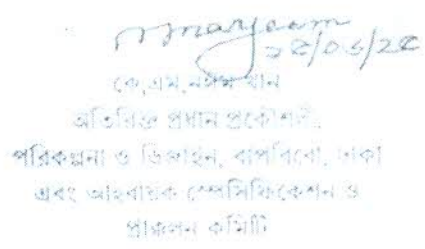 ২৫/০৬/২৫
কে,এম,নঈম খান
অতিরিক্ত প্রধান প্রকৌশলী,
পরিকল্পনা ও ডিজাইন, বাপবিবো, ঢাকা
এবং আহবায়ক স্পেসিফিকেশন ও
প্রাক্কলন কমিটি